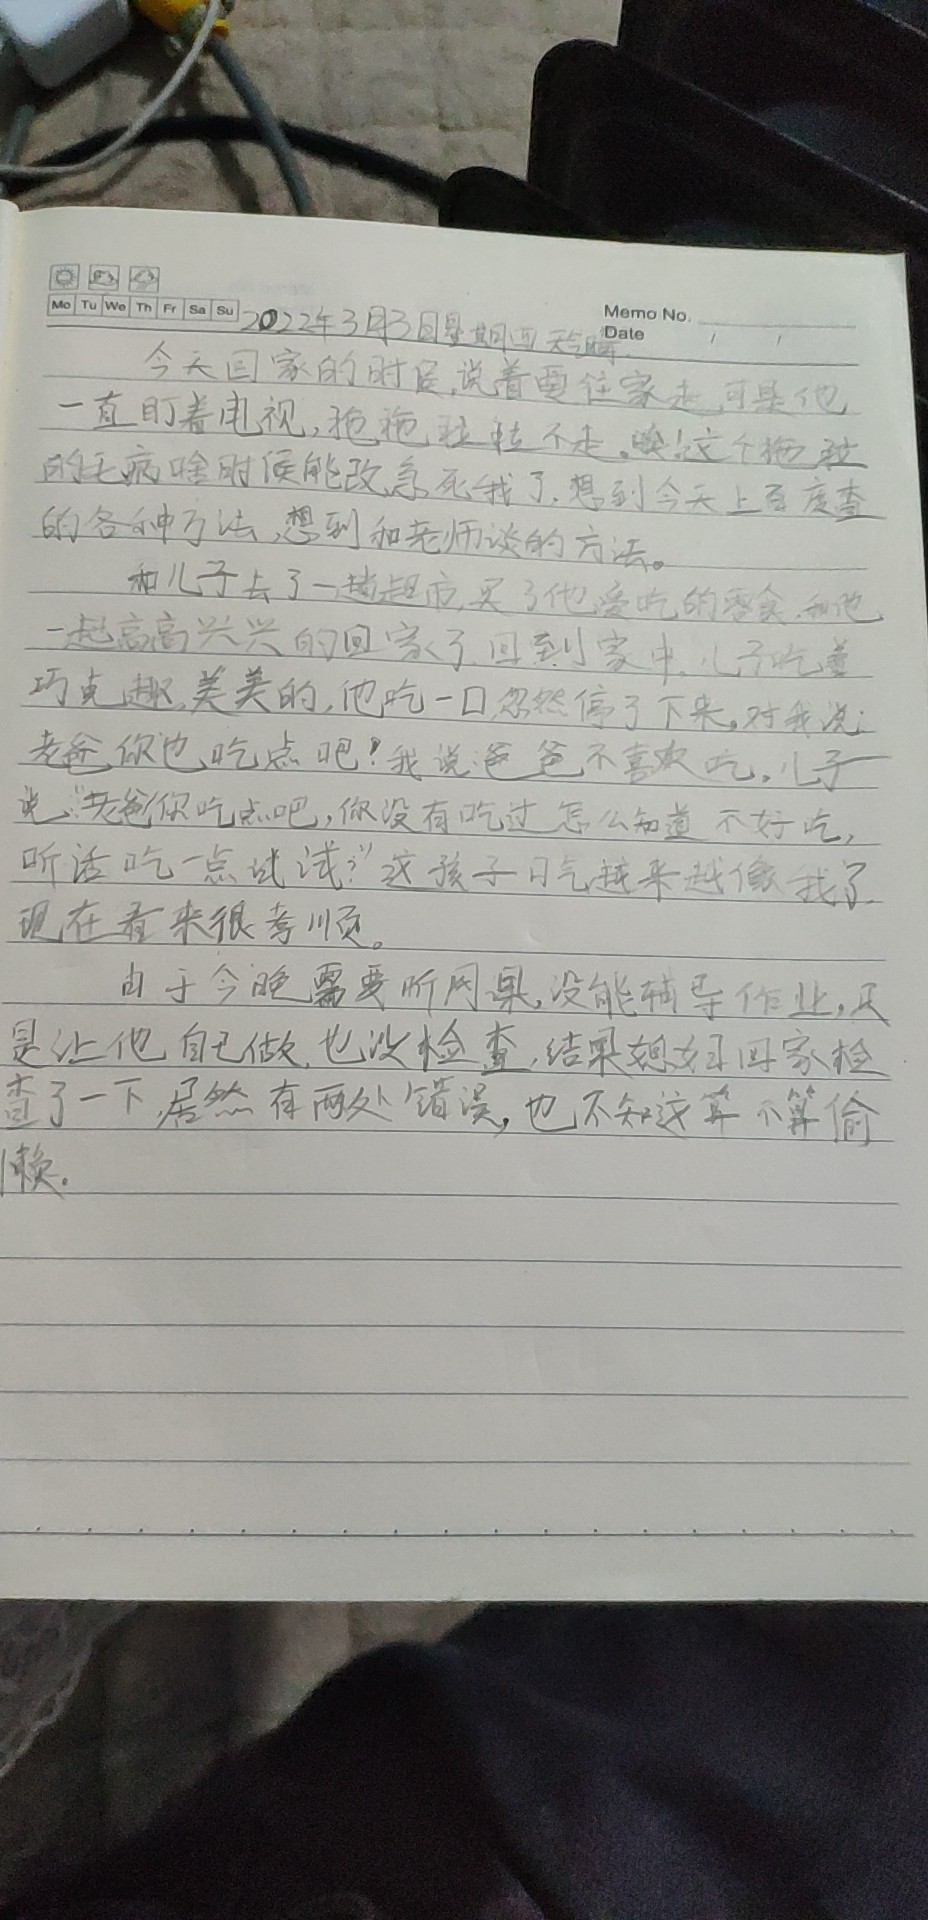 Mo Tu We Th Fr Sa Su
Memo No.
Date
2022年3月3日星期四 天气晴
今天回家的时候,说着要往家走,可是他
一直盯着电视,拖拖拉拉不走。唉!这个拖拉
的毛病啥时候能改,急死我了,想到今天上百度查
的各种方法,想到和老师谈的方法。
和儿子去了一趟超市,买了他爱吃的零食,和他
一起高高兴兴的回家了,回到家中,儿子吃着
巧克趣,美美的,他吃一口,忽然停了下来。对我说:
老爸你也吃点吧!我说爸爸不喜欢吃。儿子
说:“老爸你吃点吧,你没有吃过怎么知道不好吃,
听话吃一点试试?”这孩子口气越来越像我了.
现在看来很孝顺。
由于今晚需要听网课,没能辅导作业,只
是让他自己做,也没检查,结果妈妈回家检
查了一下,居然有两处错误,也不知这算不算偷
懒.